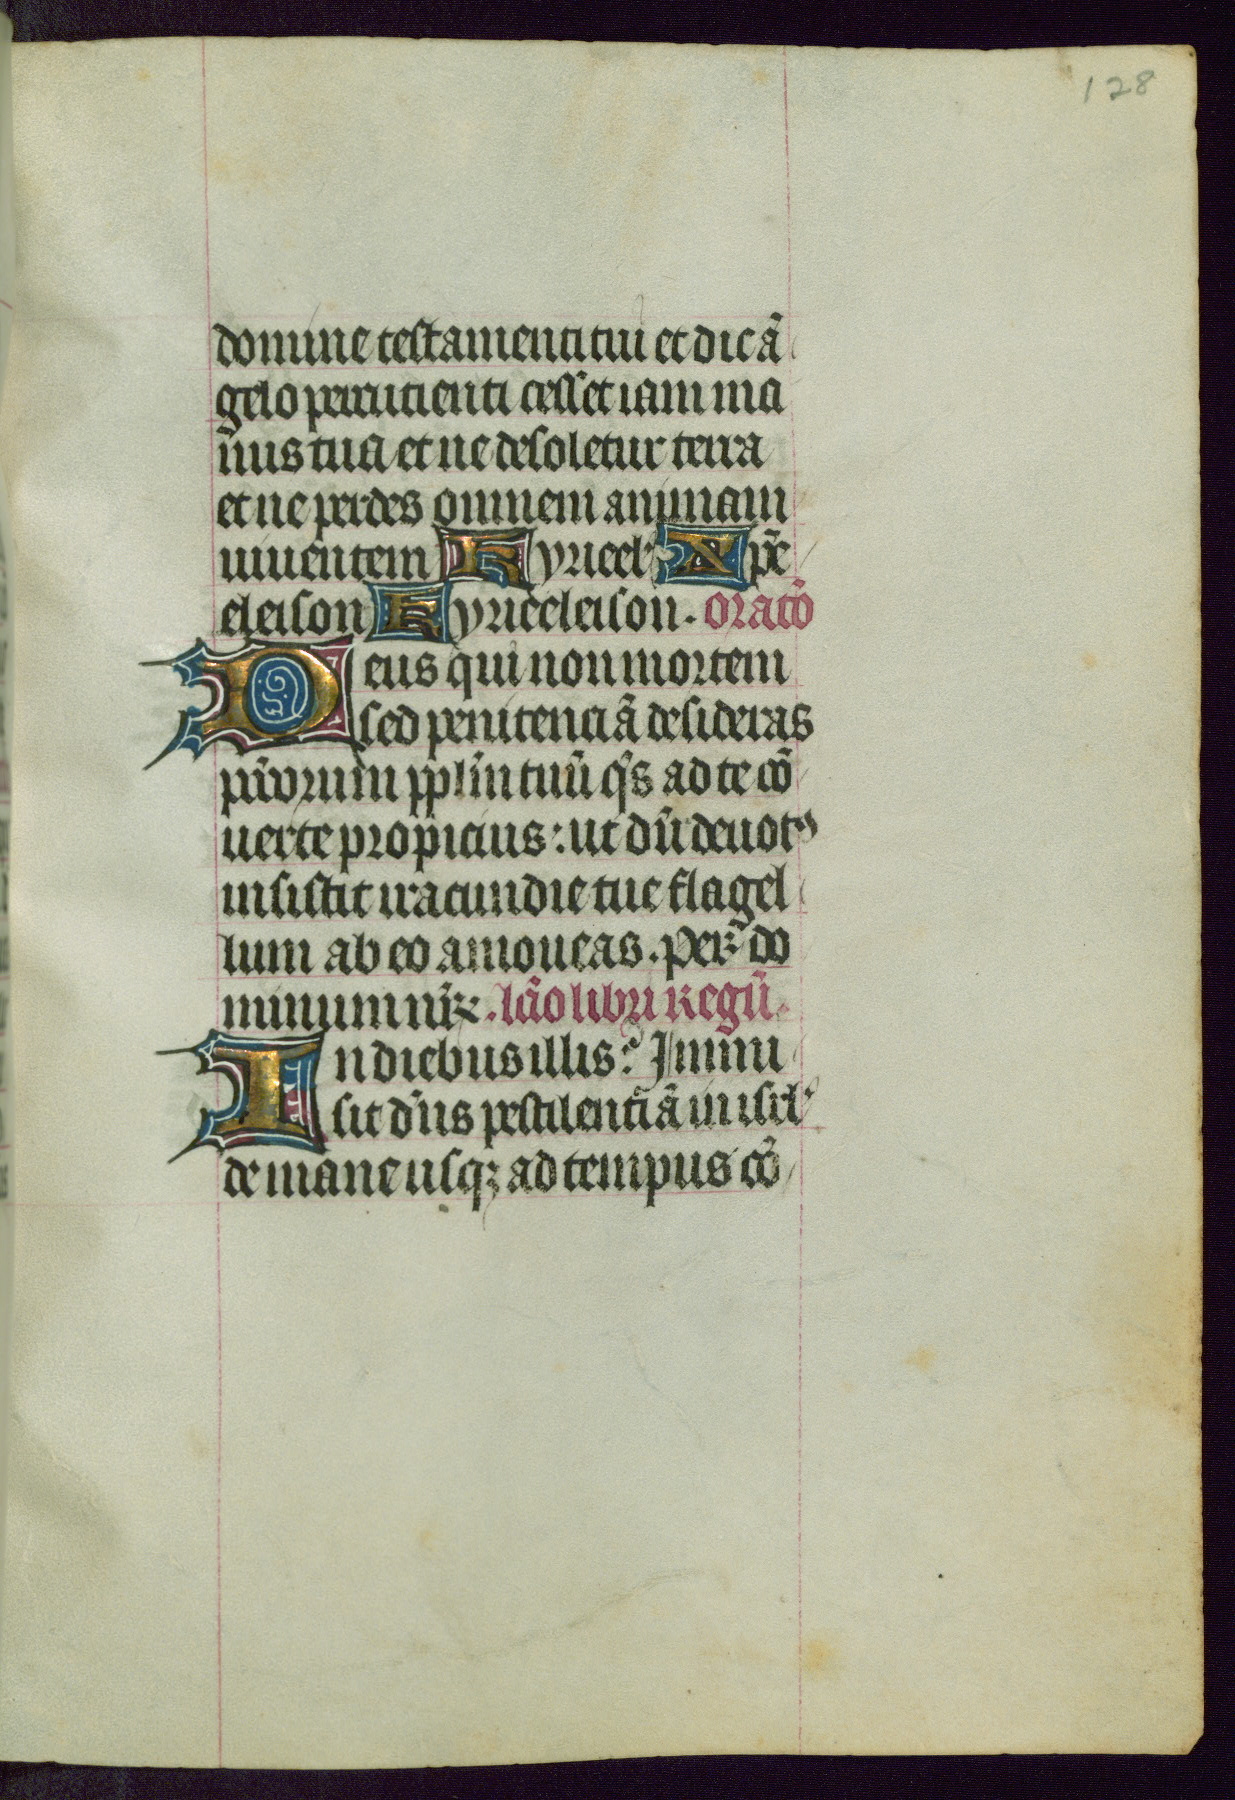 128
domine testamenti tui et dic ā
gelo percutienti cesset iam ma
nus tua et ne desoletur terra
et ne perdes omnem animam
uiuentem Kyrieel' Xpē
eleison Kyrieeleison. oratō
Deus qui non mortem
sed penitenciā desideras
pp̄lm tuū q̄s ad te cō
uerte propicius: ut dū deuot9
insistit iracundie tue flagel
lum ab eo amoueas. Per do
minum nr̄ lc̄o libri Regū.
In diebus illis: Immi
sit dn̄s pestilentiā in isrl'
de mane usq; ad tempus cō